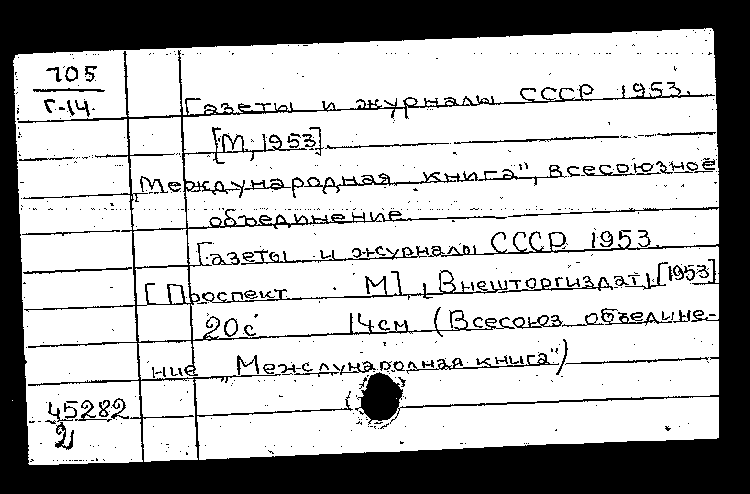 705
Г-14.
Газеты и журналы СССР 1953.
[М, 1953].
„Международная книга", всесоюзное
объединение.
Газеты и журналы СССР 1953.
[Проспект М], „Внешторгиздат", [1953]
20с 14см (Всесоюз объедине-
ние „Международная книга")
45282
2